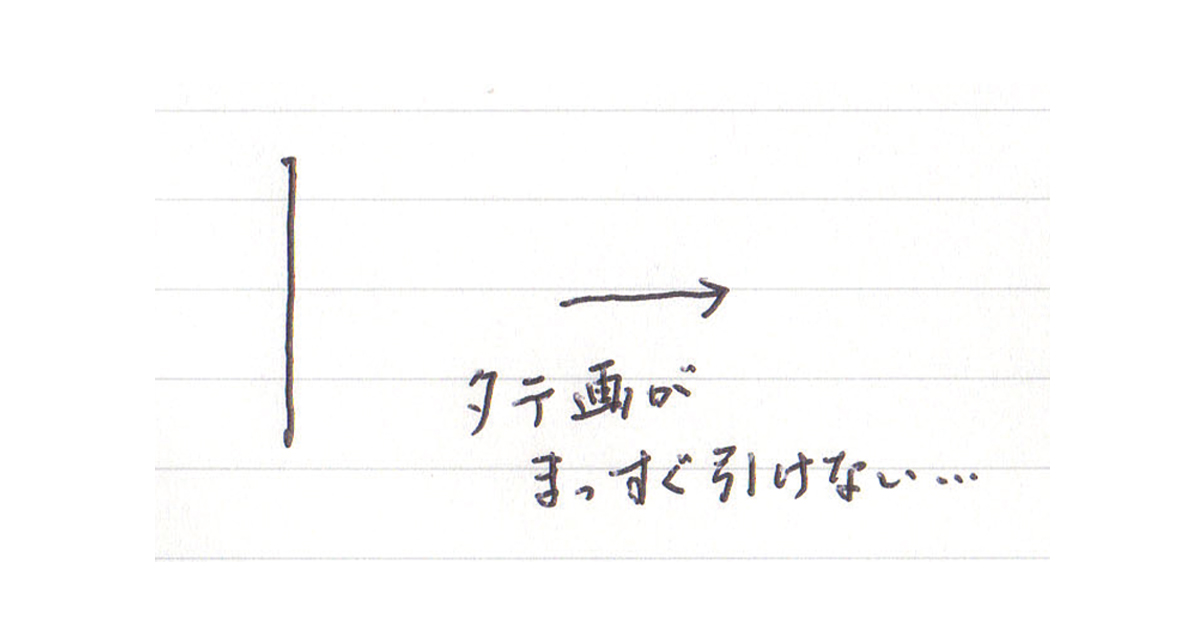 タテ画が
まっすぐ引けない…